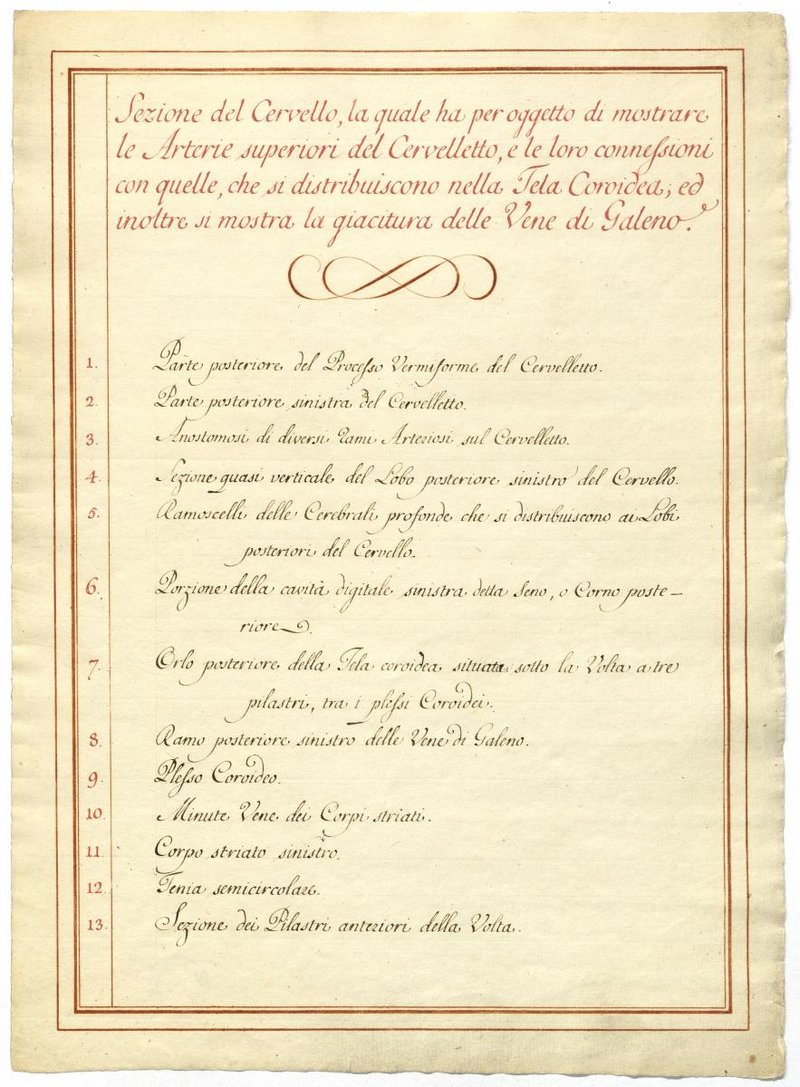 Sezione del Cervello, la quale ha per oggetto di mostrare
le Arterie superiori del Cervelletto, e le loro connessioni
con quelle, che si distribuiscono nella Tela Coroidea; ed
inoltre si mostra la giacitura delle Vene di Galeno.
1. Parte posteriore del Processo Vermiforme del Cervelletto.
2. Parte posteriore sinistra del Cervelletto.
3. Anostomosi di diversi rami Arteriosi sul Cervelletto.
4. Sezione quasi verticale del Lobo posteriore sinistro del Cervello.
5. Ramoscelli delle Cerebrali profonde che si distribuiscono ai Lobi
posteriori del Cervello.
6. Porzione della cavità digitale sinistra detta Seno, o Corno poste-
riore.
7. Orlo posteriore della Tela coroidea situata sotto la Volta a tre
pilastri, tra i plessi Coroidei.
8. Ramo posteriore sinistro delle Vene di Galeno.
9. Plesso Coroideo.
10. Minute Vene dei Corpi striati.
11. Corpo striato sinistro.
12. Tenia semicircolare.
13. Sezione dei Pilastri anteriori della Volta.